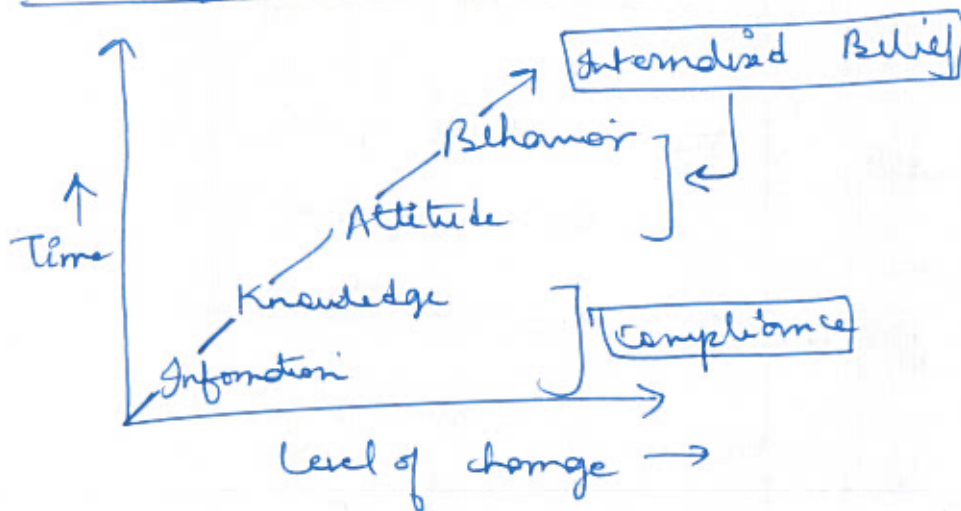 Internalized Belief
Behavior
Attitude
Time
Knowledge
Compliance
Information
Level of change